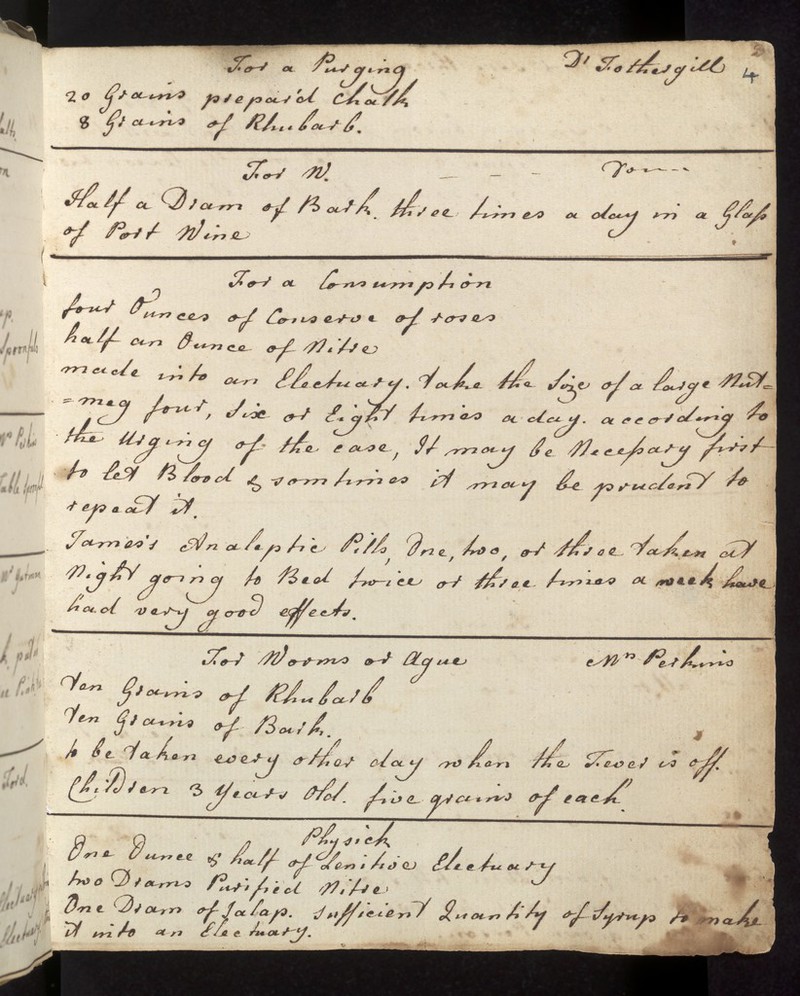 4
For a Purging Dr Fothergill
20 Grains prepar'd Chalk
8 Grains of Rhubarb.
For W. - - -
Half a Dram of Bark. three times a day in a Glass
of Port Wine
For a Consumption
four Ounces of Conserve of roses
half an Ounce of Nitre
made into an Electuary. take the Size of a large Nut=
=meg four, Six or Eight times a day. according to
the Urging of the case, It may be Necessary first
to let Blood & somtimes it may be prudent to
repeat it.
James's Analeptic Pills, One, two, or three taken at
Night going to Bed twice or three times a week have
had very good effects.
For Worms or Ague Mrs Perkins
Ten Grains of Rhubarb
Ten Grains of Bark.
to be taken every other day when the Fever is off.
Children 3 Years Old. five grains of each
Physick
One Ounce & half of Lenitive Electuary
two Drams Purified Nitre
One Dram of Jalap. sufficient Quantity of Syrup to make
it into an Electuary.